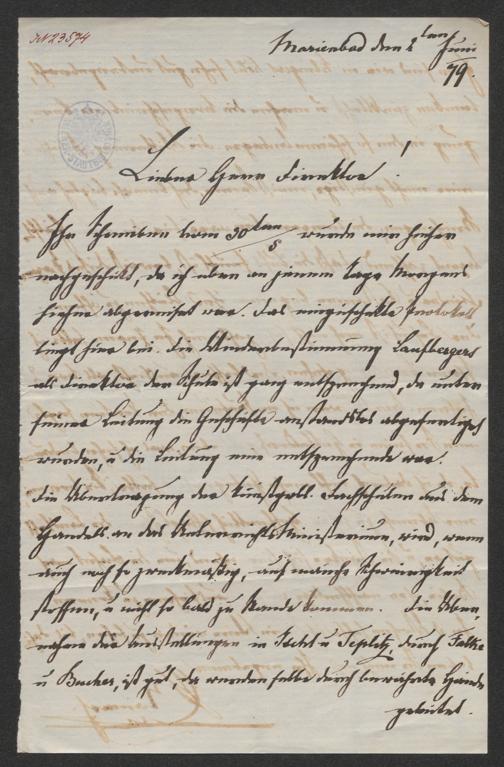 IN 23574
Marienbad den 2ten Juni
79.
Lieber Herr Direktor!
Ihr Schreiben vom 30ten/5 wurde mir hieher
nachgeschikt, da ich eben an jenem Tage Morgens
hieher abgereiset war. Das eingeschikte Protokoll
liegt hier bei. Die Wiederbestimmung Laufbergers
als Direktor der Schule ist ganz entsprechend, da unter
seiner Leitung die Geschäfte anstandslos abgefertiget
wurden, u die Leitung eine entsprechende war.
Die Übertragung der kunstgewb. Fachschulen aus dem
Handels an das Unterrichts Ministerium, wird, wenn
auch noch so zwekmäßig, auf manche Schwierigkeit
stoßen, u nicht so bald zu Stande kommen. Die Über,
nahme der Ausstellungen in u Teplitz, durch Falke
u Bucher, ist gut, da werden selbe durch bewährte Hände
geleitet.